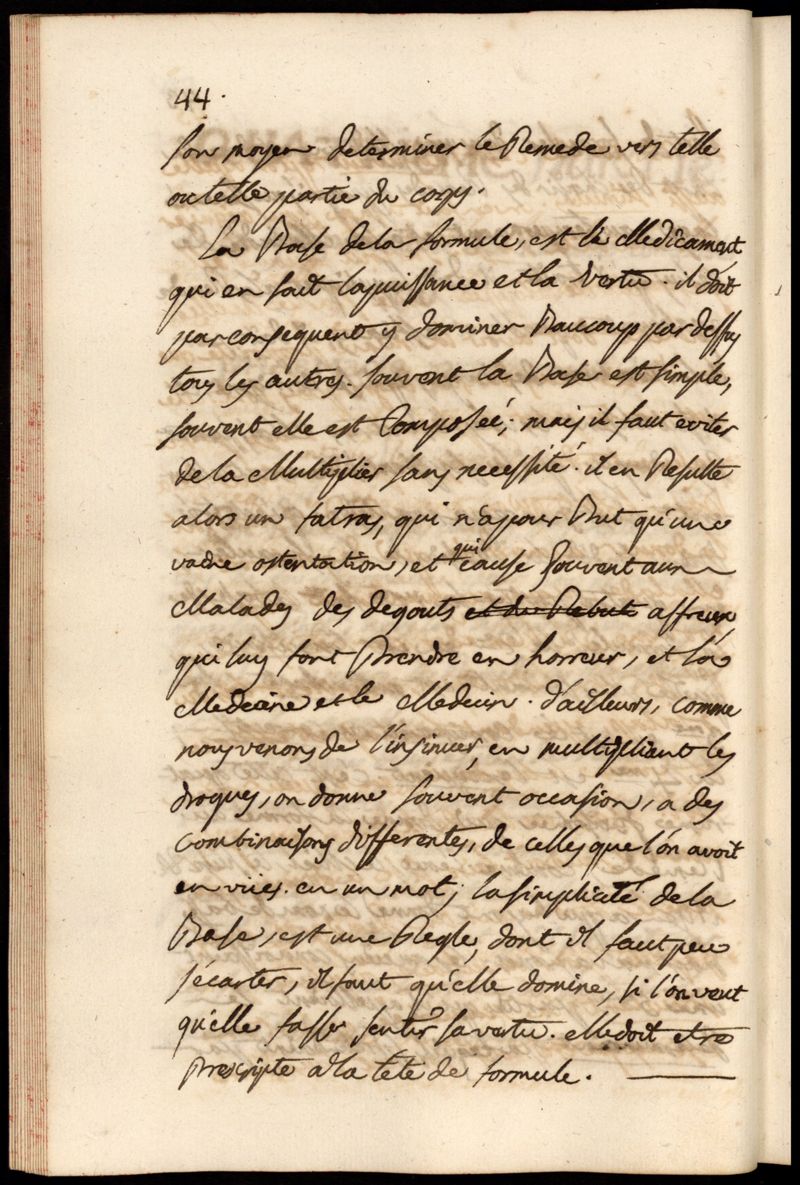 44.
son moyen determiner le Remede vers telle
ou telle partie du corps.
La Base dela formule, est le Medicament
qui en fait la puissance et la vertu. il doit
par consequent y dominer Baucoup par dessus
tous les autres. souvent la Base est simple,
souvent elle est Composeé; mais il faut eviter
de la Multiplier sans necessité. il en Resulte
alors un fatras, qui n'a pour But qu'une
vaine ostentation, et qui cause souvent aux
Malades des degouts et du Rebut affreux
qui luy font Prendre en horreur, et la
Medecine et le Medecin. d'ailleurs, comme
nous venons de l'insinuer, en multipliant les
drogues, on donne souvent occasion, a des
combinaisons differentes, de celles que l'on avoit
en vües. en un mot; la simplicité de la
Base, est une Regle, dont il faut peu
s'ecarter, il faut qu'elle domine, si l'on veut
qu'elle fasse sentir sa vertu. elle doit etre
prescripte a la tete de formule.